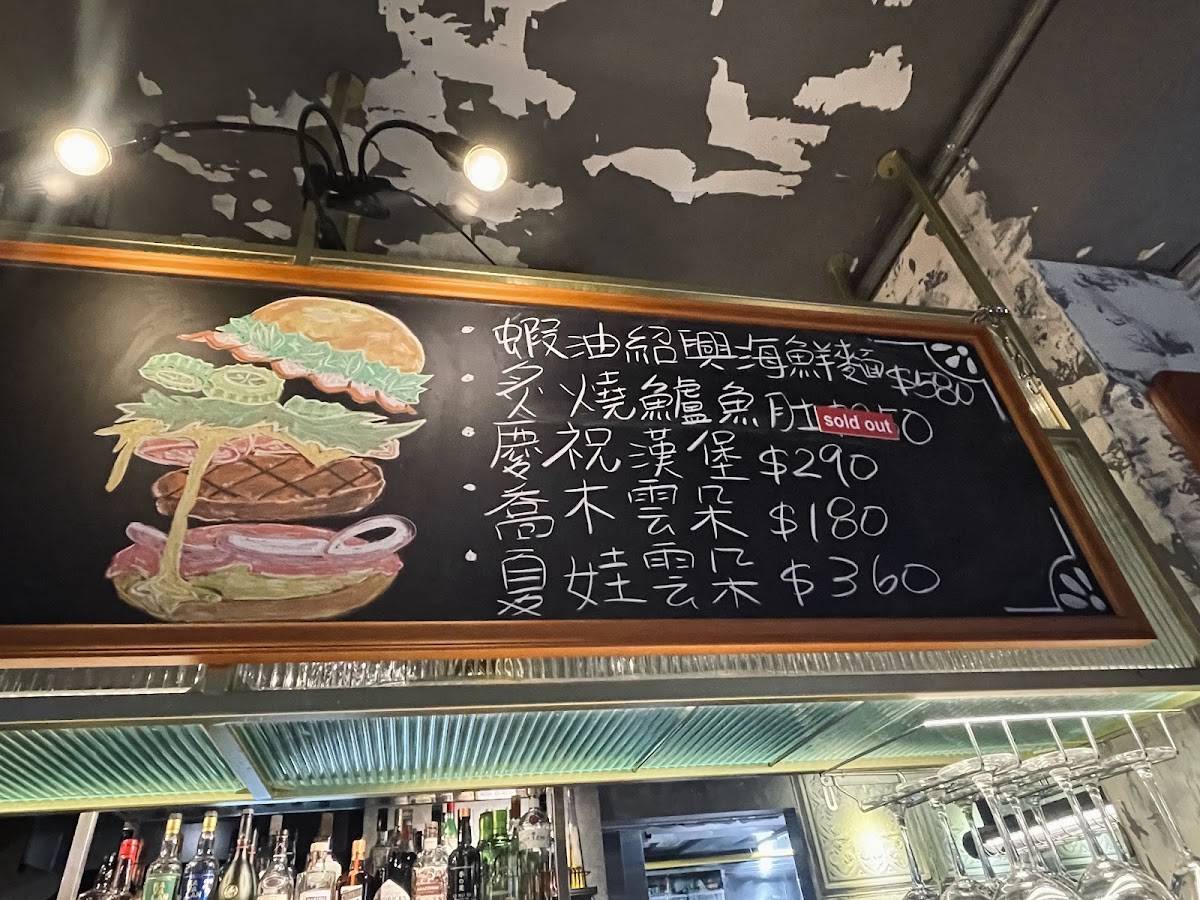 · 蝦油紹興海鮮麵 $580
· 炙燒鱸魚肚 sold out 50
· 慶祝漢堡 $290
· 喬木雲朵 $180
· 夏娃雲朵 $360